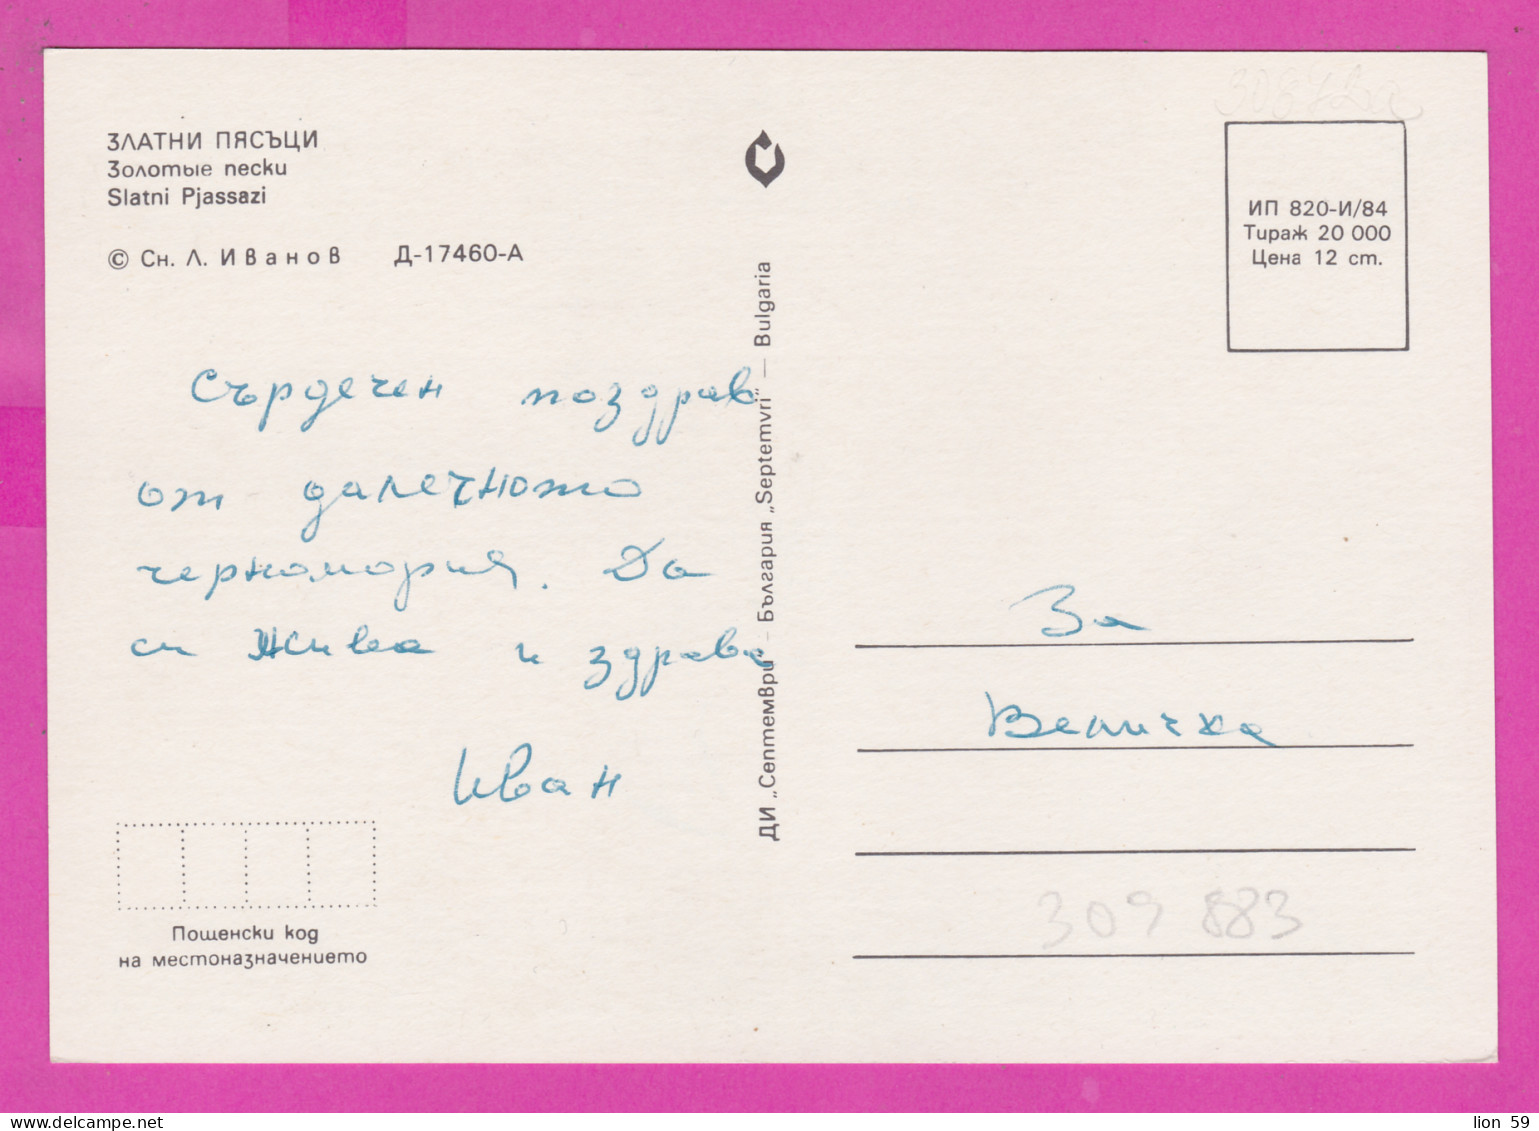 ЗЛАТНИ ПЯСЪЦИ
Золотые пески
Slatni Pjassazi
© Сн. Л. Иванов Д-17460-А
Сърдечен поздрав
от далечното
черномория. Да
си жива и здрава
Иван
Пощенски код
на местоназначението
ДИ „Септември" – България „Septemvri" – Bulgaria
ИП 820-И/84
Тираж 20 000
Цена 12 ст.
За
Величка
309 883
delcampe.net
lion 59